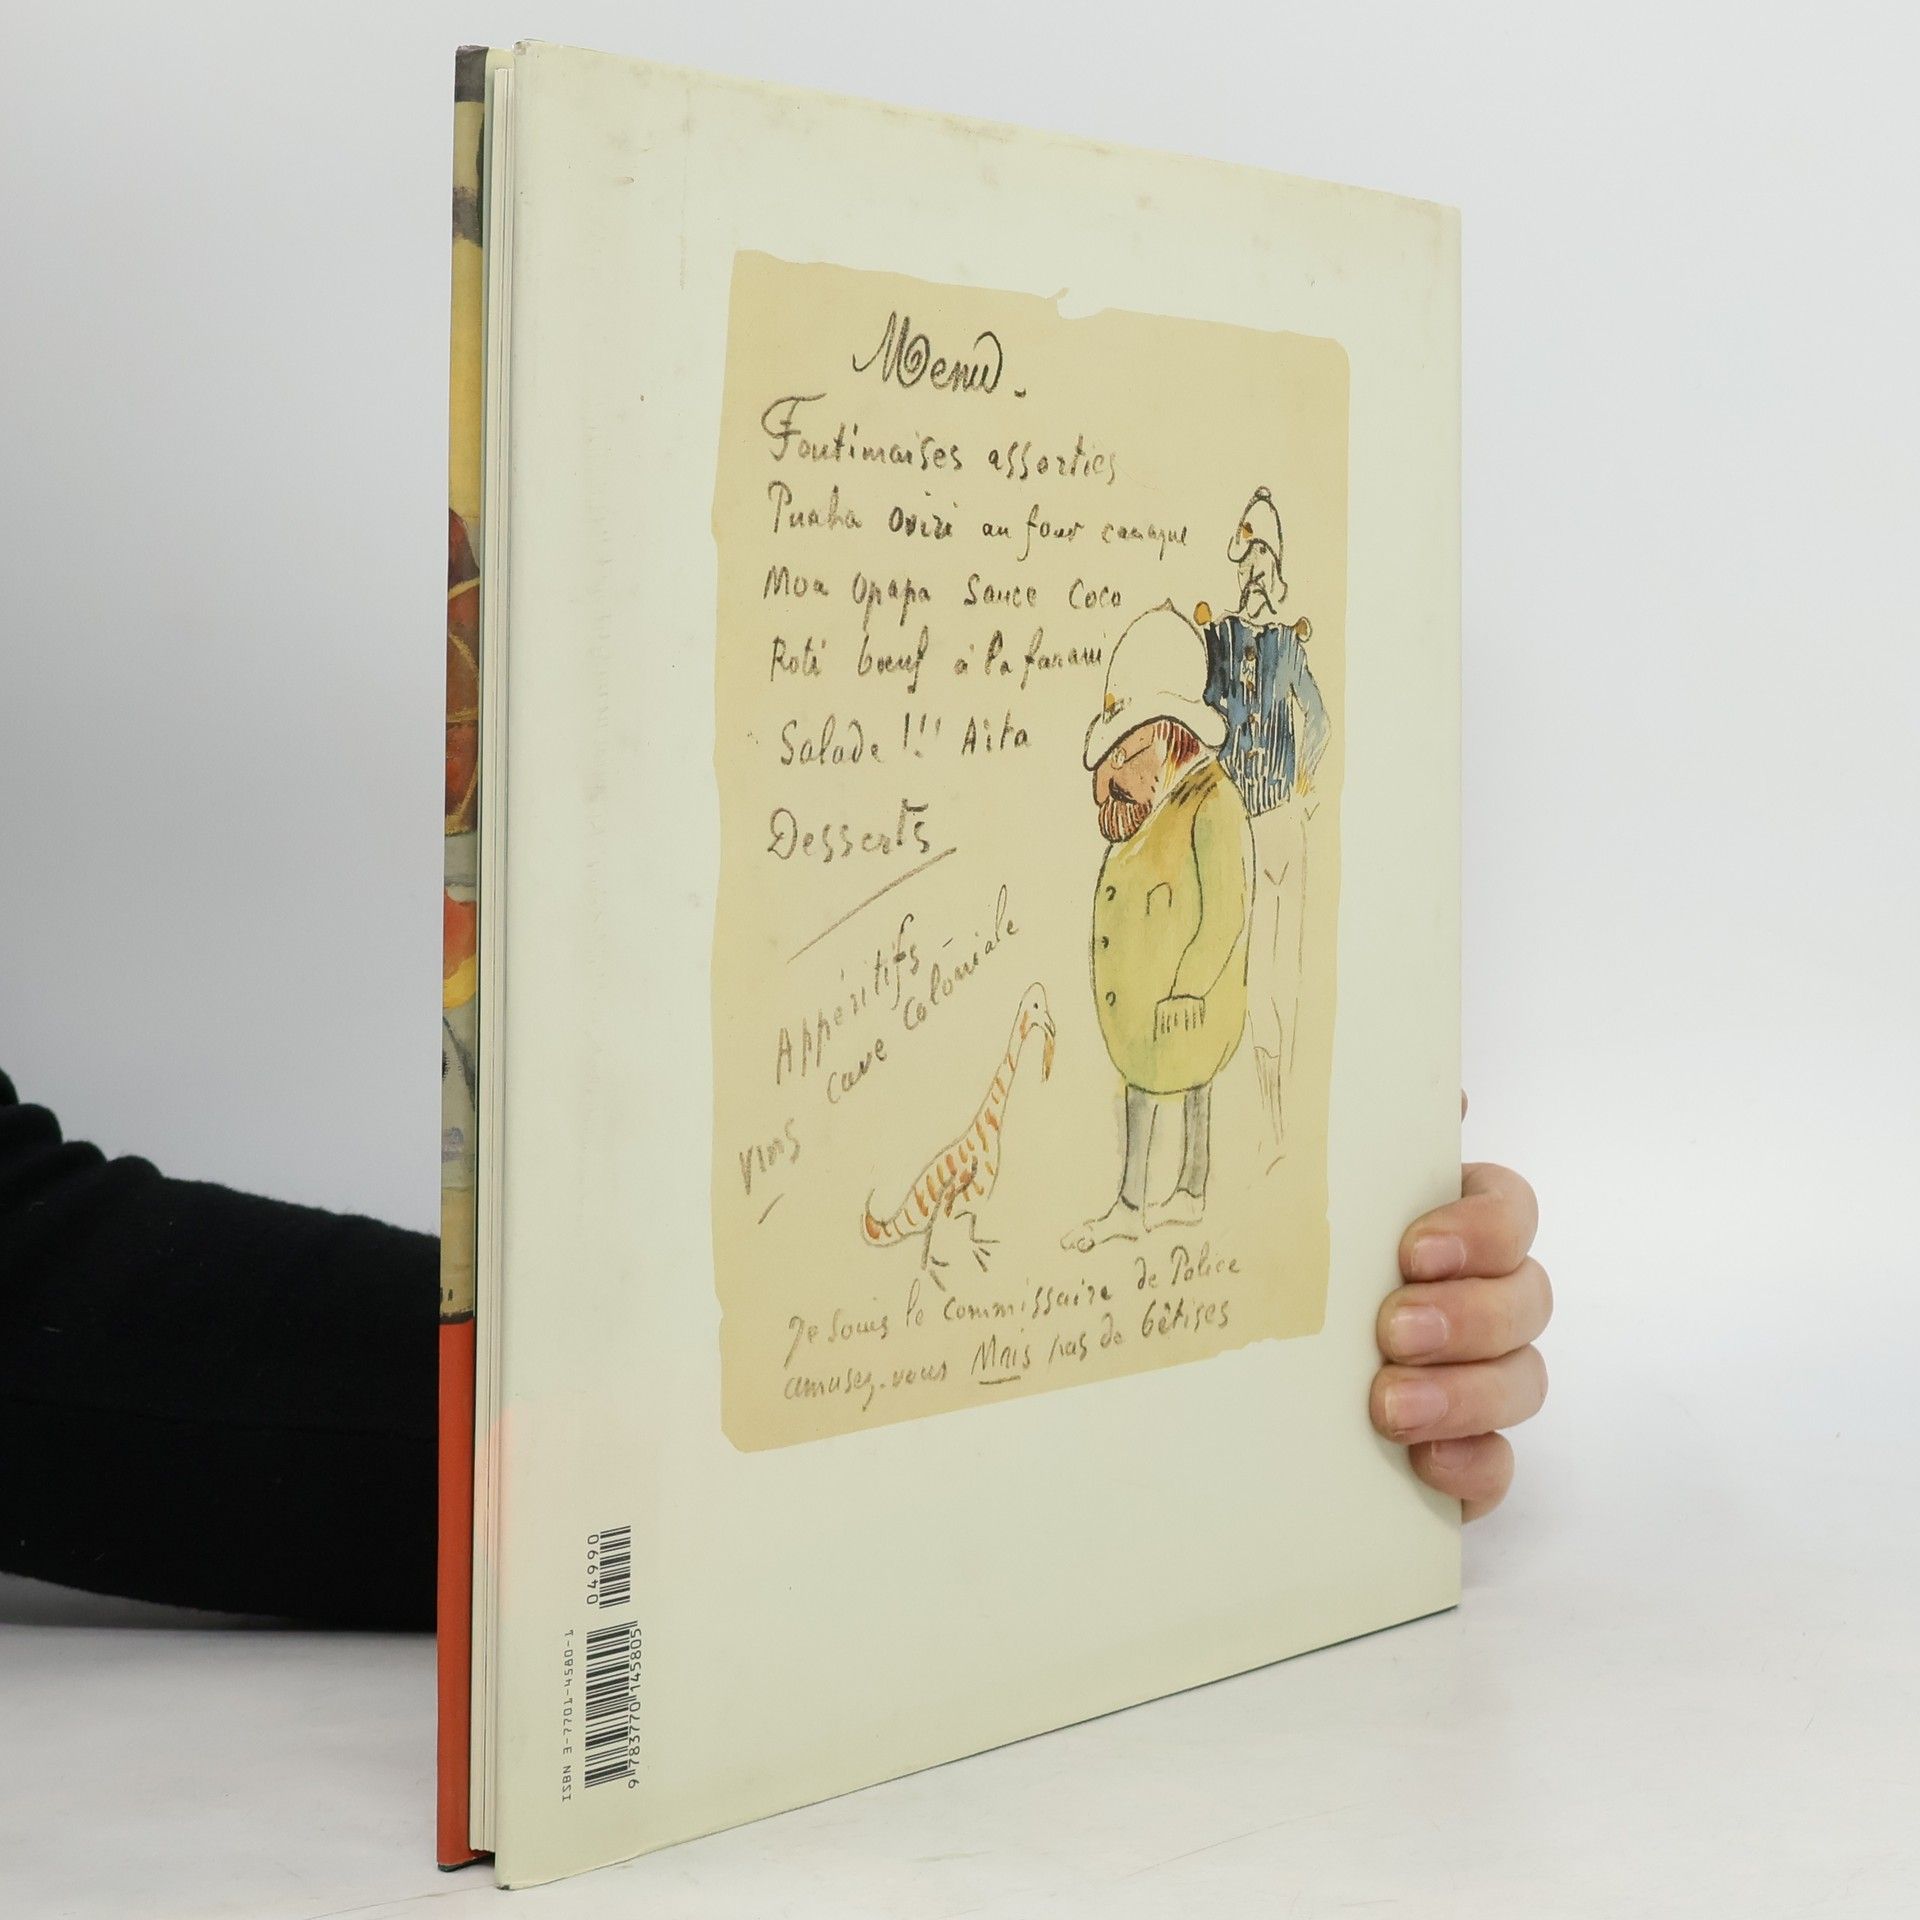 Menu.
Foutimaises assorties
Puaha oviri au four canaque
Moa Opapa Sauce Coco
Roti boeuf à la farani
Salade !!! Aita
Desserts
Appéritifs
cave coloniale
vins
Je souis le commissaire de Police
amusez-vous Mais pas de bêtises
ISBN 3-7701-4580-1
9 783770 145805
04990